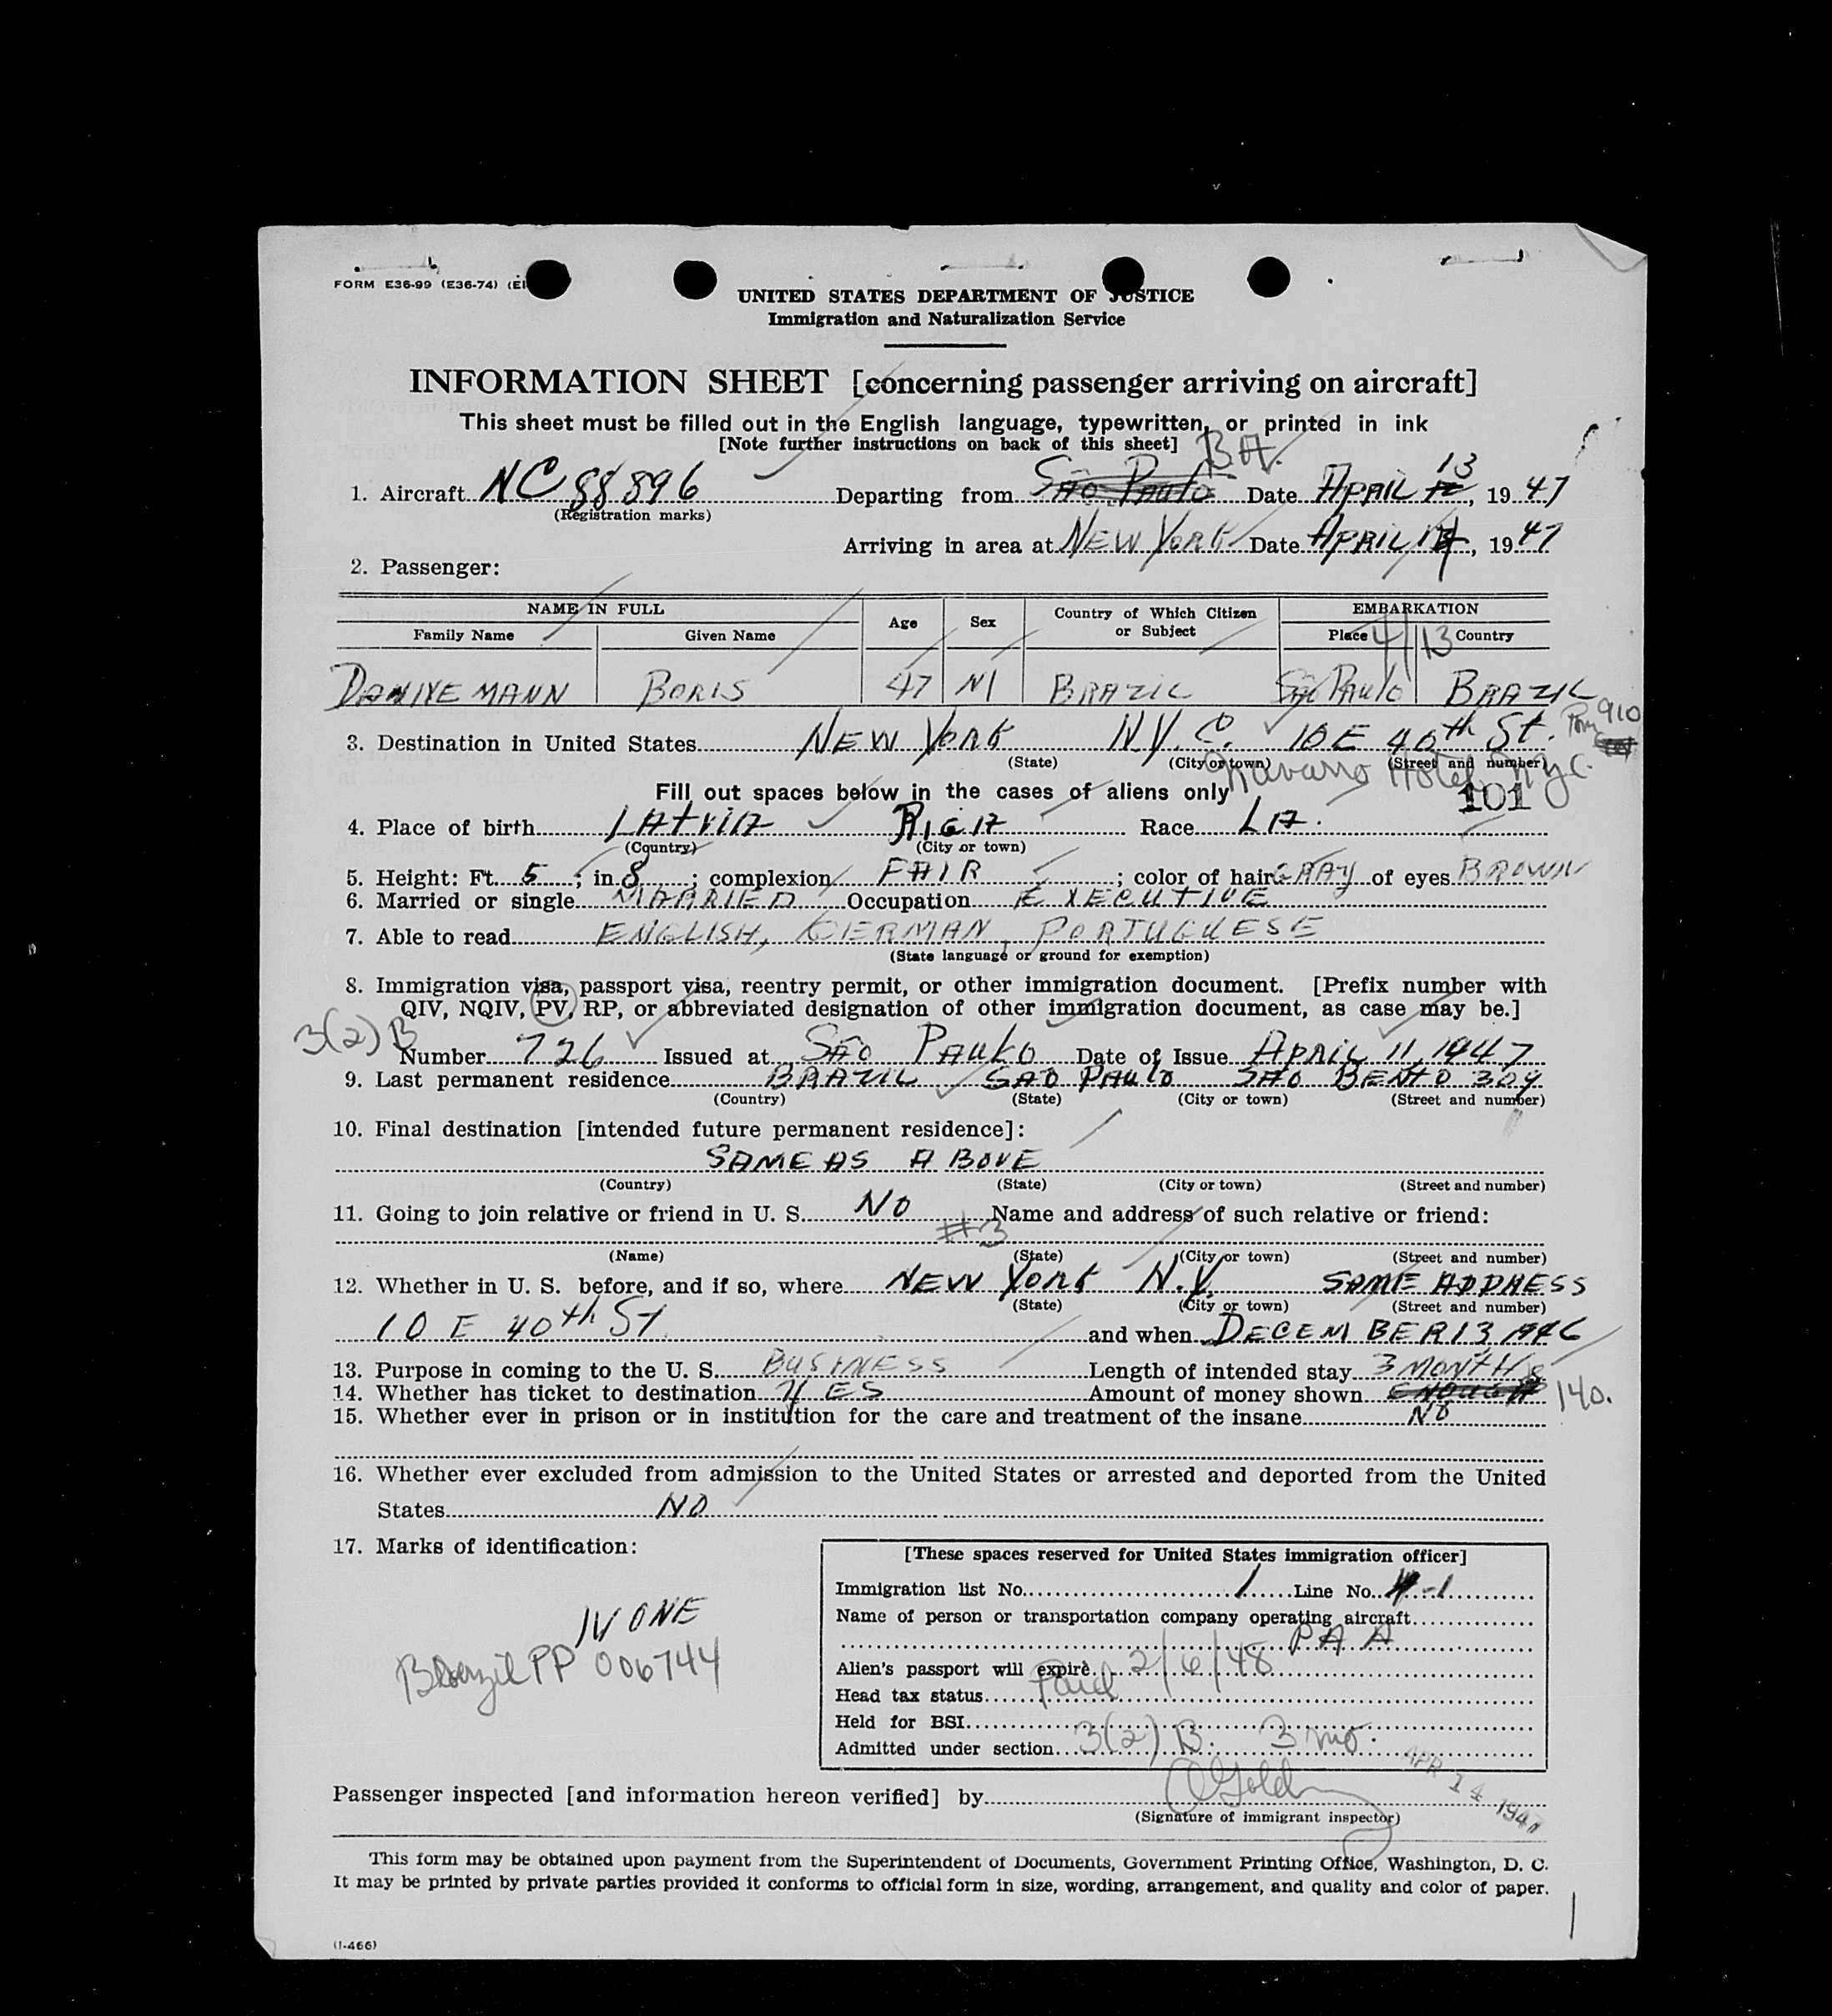 FORM E36-99 (E36-74) (E
UNITED STATES DEPARTMENT OF JUSTICE
Immigration and Naturalization Service
INFORMATION SHEET [concerning passenger arriving on aircraft]
This sheet must be filled out in the English language, typewritten, or printed in ink
[Note further instructions on back of this sheet]
B.A.
1. Aircraft NC 88896 Departing from São Paulo Date APRIL 13, 1947
(Registration marks)
Arriving in area at NEW YORK Date APRIL 14, 1947
2. Passenger:
NAME IN FULL Age Sex Country of Which Citizen or Subject EMBARKATION
Family Name Given Name Place Country
4/13
DANNEMANN BORIS 47 M BRAZIL São PAULO BRAZIL
3. Destination in United States NEW YORK N.Y.C. 10 E 40th St. Rm 910
(State) (City or town) (Street and number)
Navarro Hotel N.Y.C.
Fill out spaces below in the cases of aliens only
101
4. Place of birth LATVIA RIGA Race LA.
(Country) (City or town)
5. Height: Ft. 5; in 8; complexion FAIR; color of hair GRAY of eyes BROWN
6. Married or single MARRIED Occupation EXECUTIVE
7. Able to read ENGLISH, GERMAN, PORTUGUESE
(State language or ground for exemption)
8. Immigration visa, passport visa, reentry permit, or other immigration document. [Prefix number with
QIV, NQIV, PV, RP, or abbreviated designation of other immigration document, as case may be.]
3(2) B
Number 726 Issued at São PAULO Date of Issue APRIL 11, 1947
9. Last permanent residence BRAZIL SAO PAULO SAO BENTO 309
(Country) (State) (City or town) (Street and number)
10. Final destination [intended future permanent residence]:
SAME AS ABOVE
(Country) (State) (City or town) (Street and number)
11. Going to join relative or friend in U. S. NO Name and address of such relative or friend:
#3
(Name) (State) (City or town) (Street and number)
12. Whether in U. S. before, and if so, where NEW YORK N.Y. SAME ADDRESS
(State) (City or town) (Street and number)
10 E 40th St. and when DECEMBER 13, 1946
13. Purpose in coming to the U. S. BUSINESS Length of intended stay 3 MONTHS
14. Whether has ticket to destination YES Amount of money shown ENOUGH 140.
15. Whether ever in prison or in institution for the care and treatment of the insane NO
16. Whether ever excluded from admission to the United States or arrested and deported from the United
States NO
17. Marks of identification:
NONE
Brazil PP 006744
[These spaces reserved for United States immigration officer]
Immigration list No. 1 Line No. -1
Name of person or transportation company operating aircraft
P A A
Alien's passport will expire 2/6/48
Head tax status Paid
Held for BSI
Admitted under section 3(2) B. 3 mo.
APR 14 1947
Passenger inspected [and information hereon verified] by
(Signature of immigrant inspector)
This form may be obtained upon payment from the Superintendent of Documents, Government Printing Office, Washington, D. C.
It may be printed by private parties provided it conforms to official form in size, wording, arrangement, and quality and color of paper.
(1-466)